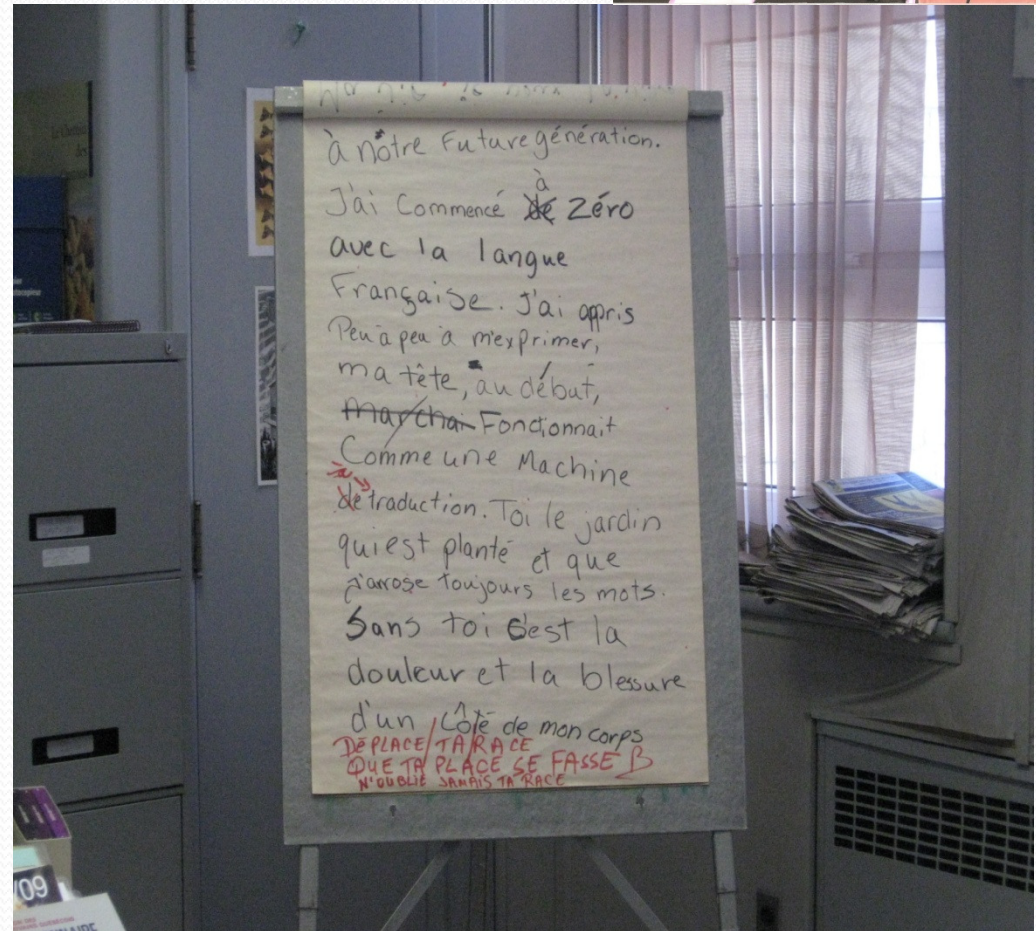 à nôtre Future génération.
à
J'ai Commencé de Zéro
avec la langue
Française. J'ai appris
Peu à peu à m'exprimer,
ma tête, au début,
marchai Fonctionnait
Comme une Machine
de traduction. Toi le jardin
qui est planté et que
j'arrose toujours les mots.
Sans toi c'est la
douleur et la blessure
d'un côté de mon corps
DÉPLACE/TA/RACE
QUE TA PLACE SE FASSE B
N'OUBLIE JAMAIS TA RACE
/09